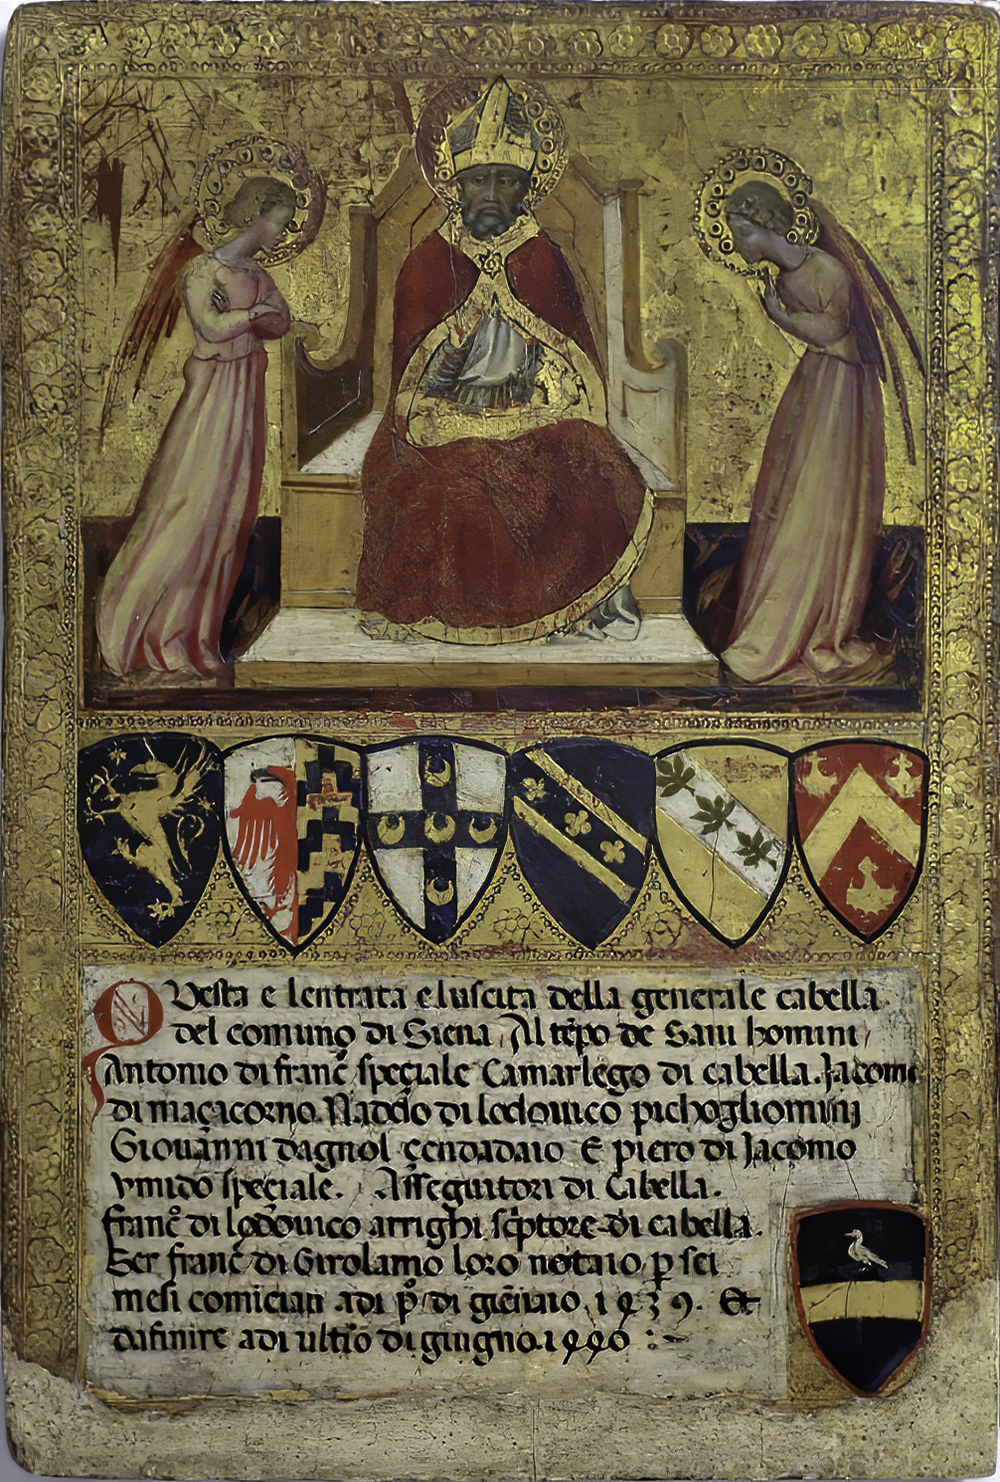 Questa e lentrata eluscita della generale cabella
del comuno di Siena Al tēpo de Savi homini
Antonio di franc̄ speçiale Camarlēgo di cabella. Jacomo
di maçacorno. Naddo di lodouico pichogliomini
Giouānni dagnol çendadaio E piero di Jacomo
vmido speçiale. Asseguitori di Cabella.
franc̄o di lodouico arrighi sc̄ptore di cabella.
Ser franc̄ di Girolamo loro notaio p sei
mesi comīciati adi p̄o di giēnaio 1439. Et
dafinire adi ultīo di giugno 1440 :~